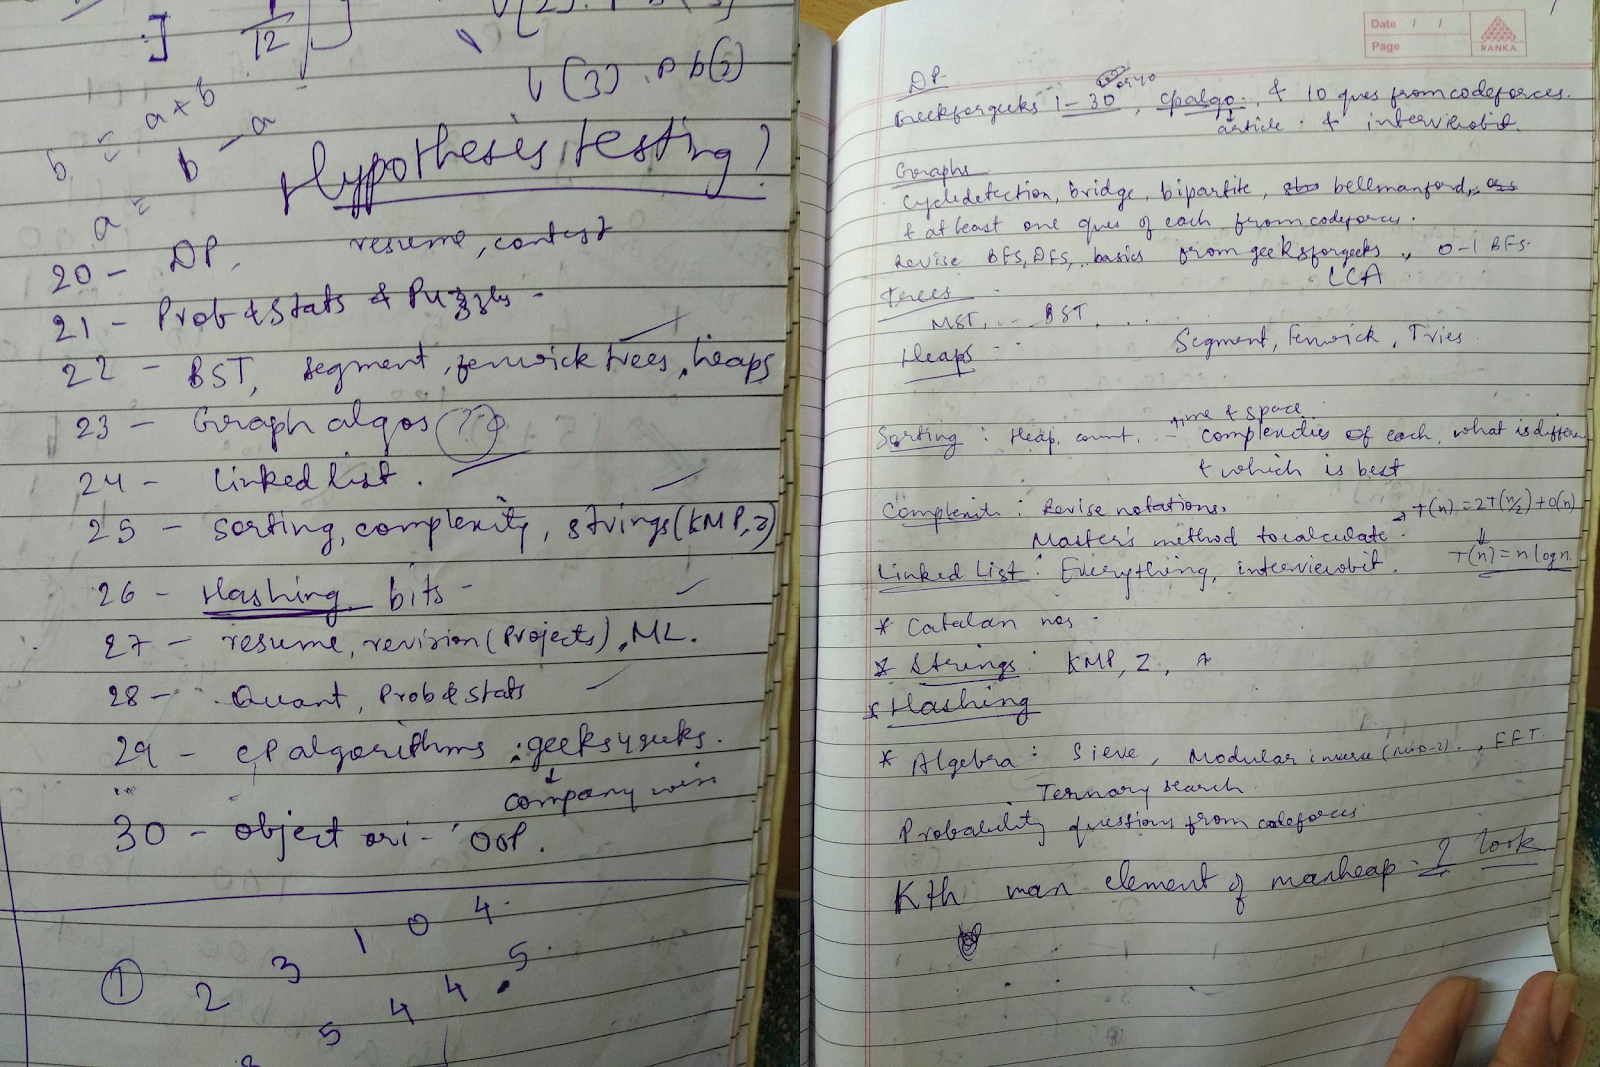 1
12
V(3) . P b(3)
b = a x b
a = b - a
Hypothesis testing?
20 - DP, resume, contest
21 - Prob & Stats & Puzzles -
22 - BST, segment, fenwick trees, heaps
23 - Graph algos ??
24 - Linked list .
25 - sorting, complexity, strings (KMP, Z)
26 - Hashing, bits -
27 - resume, revision (Projects), ML.
28 - Quant, Prob & stats
29 - CP algorithms : geeks4geeks.
company wise
30 - object ori - OOP.
1 0 4
① 2 3
5 4 4 5
Date / /
Page
RANKA
DP
Geekforgeeks 1 - 30 or 40, cpalgo. & 10 ques from codeforces.
article . & interviewbit.
Graphs
Cycledetection, bridge, bipartite, bellmanford,
& at least one ques of each from codeforces.
Revise BFS, DFS, basics from geeksforgeeks, 0-1 BFS.
Trees LCA
MST, .. BST, ...
Heaps Segment, Fenwick, Tries
Sorting : Heap, count, - time & space
complexities of each, what is differen
& which is best
Complexiti : Revise notations, → T(n) = 2T(n/2) + O(n)
Master's method to calculate. ↓
Linked List : Everything, interviewbit. T(n) = n log n
* Catalan nos .
* Strings : KMP, Z,
* Hashing
* Algebra : Sieve, Modular inverse, FFT.
Ternary search
Probability questions from codeforces
Kth max element of maxheap - ? look